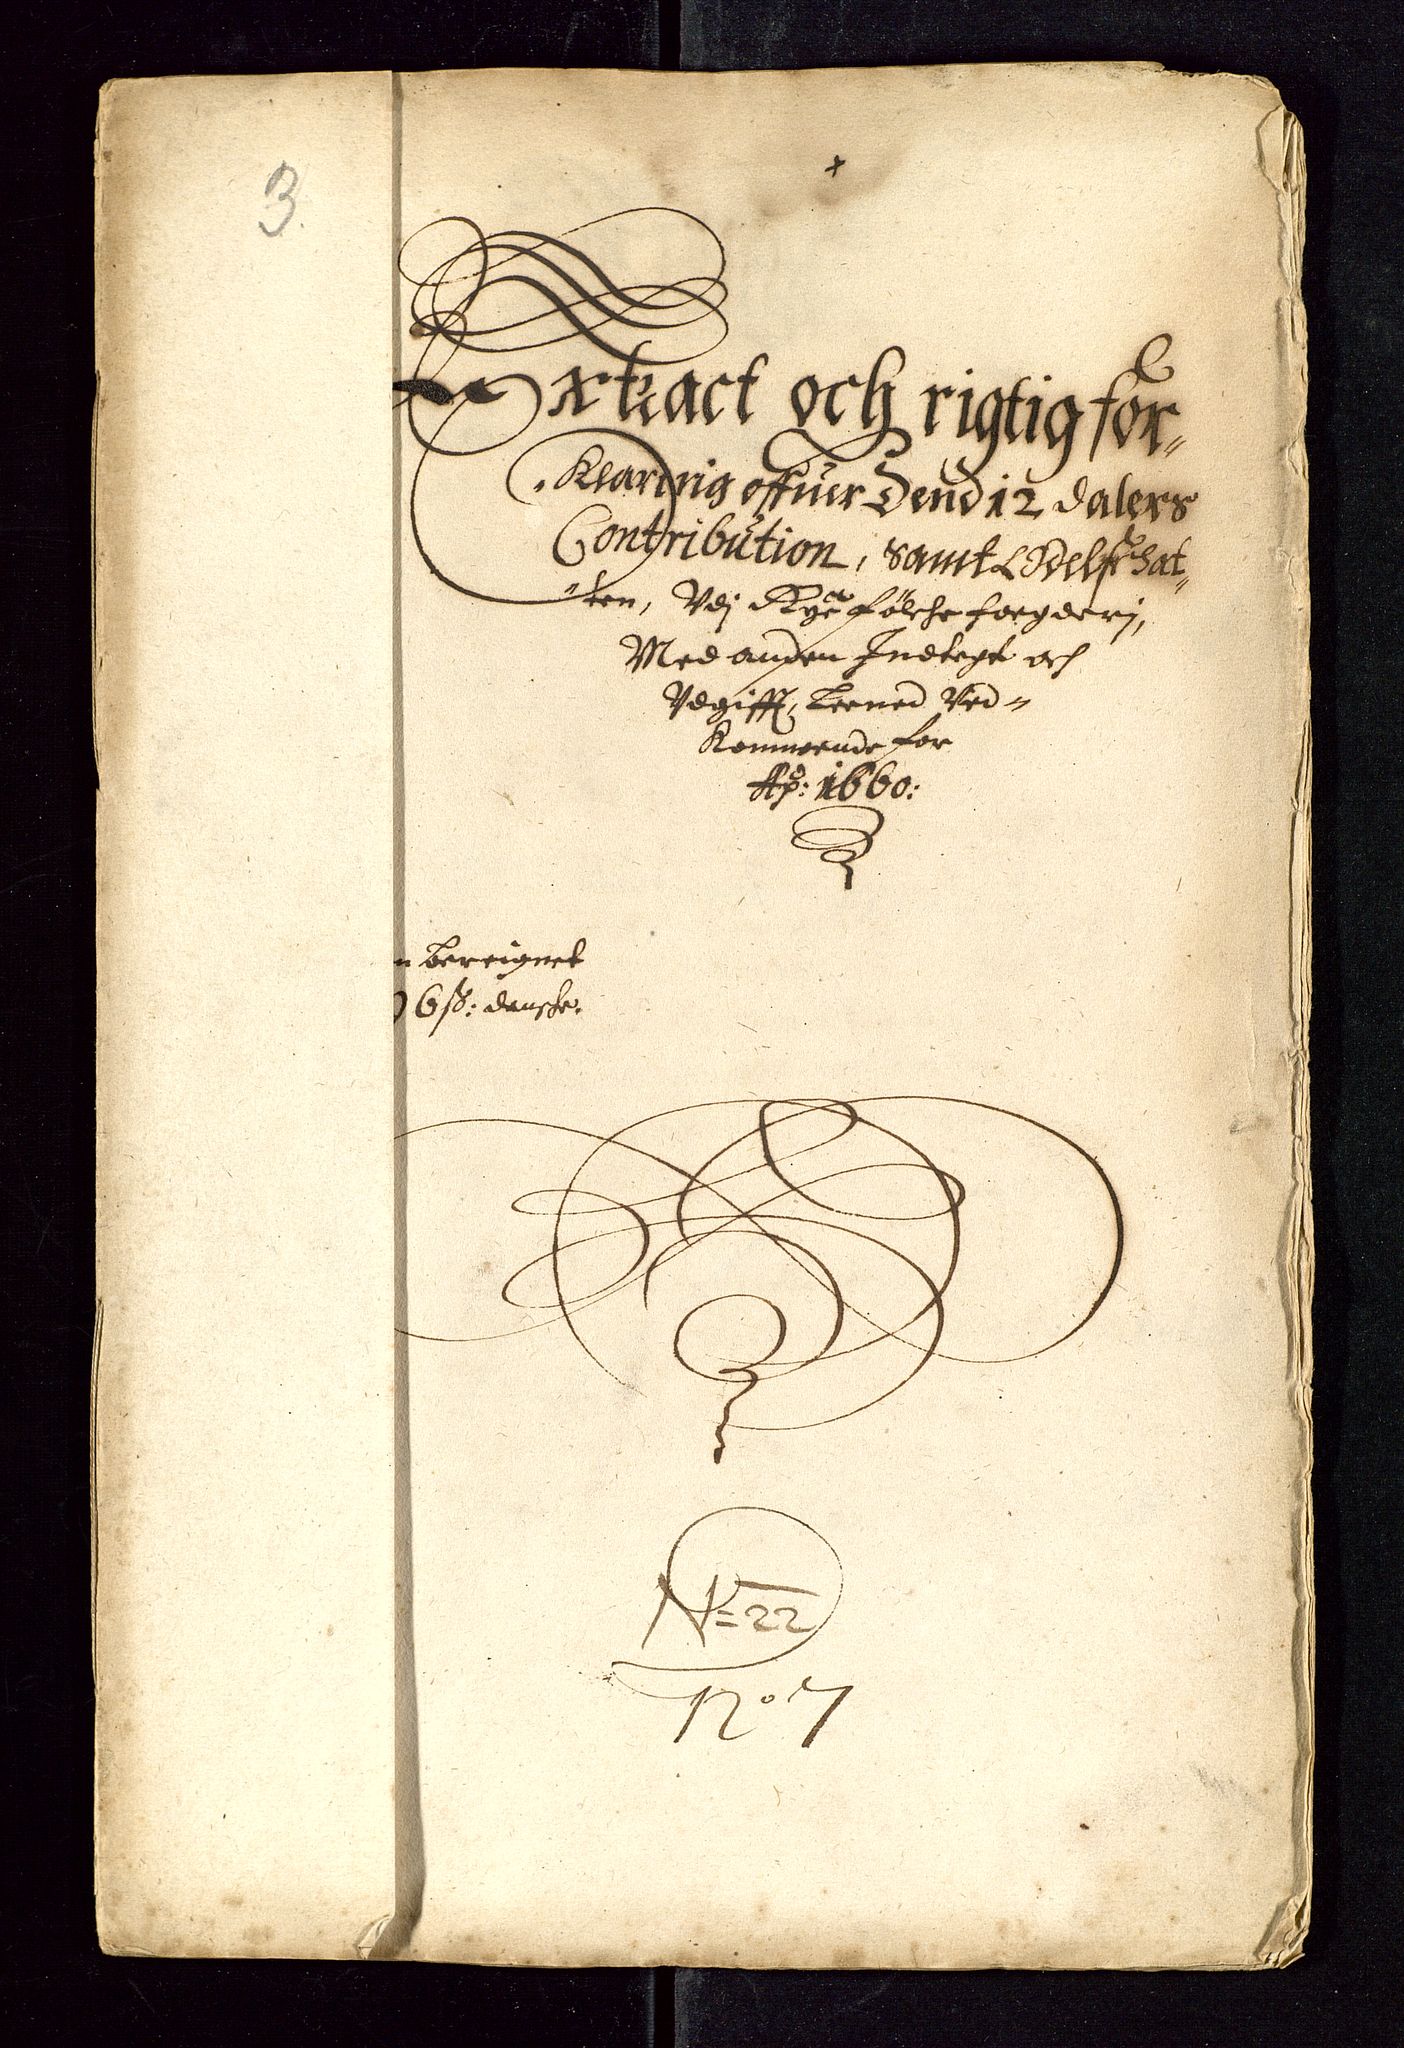 3.
Extract och rigtig for-
Klaring offuer Dend 12 dalers
Contribution, samt Odelsschat-
ten, Vdj Ryefølche fogderj,
Med anden Indtegt och
Vdgifft, Leened Ved-
Kommende for
Ao: 1660:
n bereignet
6 ß: danske.
N= 22
No 7